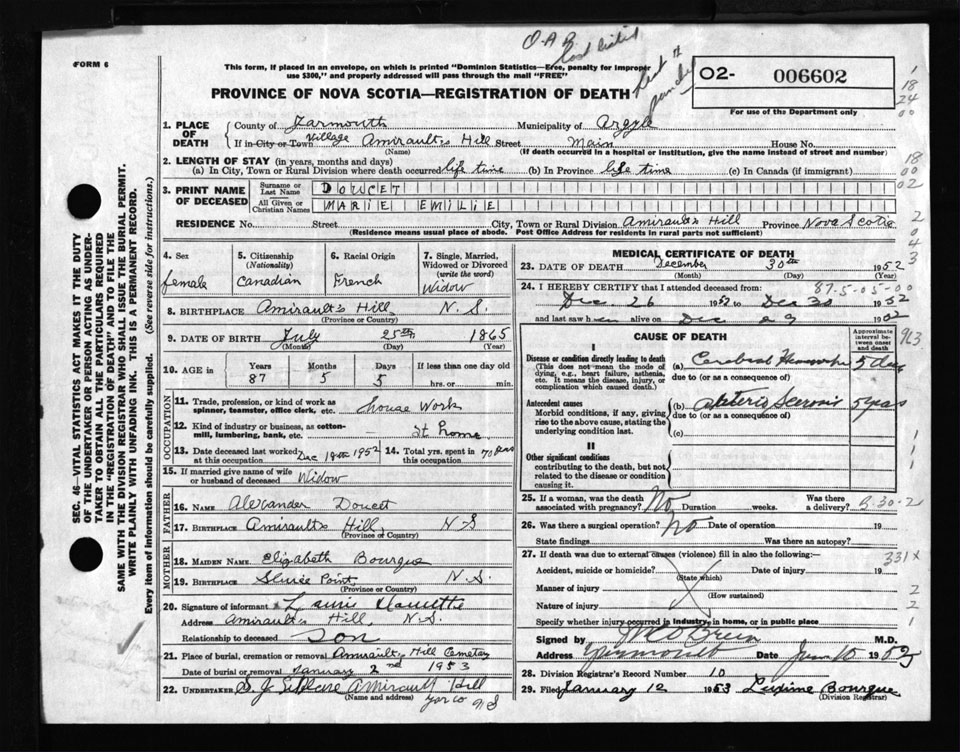 FORM 6
O.A.R.
This form, if placed in an envelope, on which is printed "Dominion Statistics—Free, penalty for improper
use $300," and properly addressed will pass through the mail "FREE"
PROVINCE OF NOVA SCOTIA—REGISTRATION OF DEATH
02- 006602
For use of the Department only
1. PLACE OF DEATH County of Yarmouth Municipality of Argyle
If in City or Town Village Amirault's Hill Street Main House No.
(Name) (If death occurred in a hospital or institution, give the name instead of street and number)
2. LENGTH OF STAY (in years, months and days)
(a) In City, Town or Rural Division where death occurred life time (b) In Province life time (c) In Canada (if immigrant)
3. PRINT NAME OF DECEASED Surname or Last Name DOUCET
All Given or Christian Names MARIE EMILIE
RESIDENCE No. Street City, Town or Rural Division Amirault's Hill Province Nova Scotia
(Residence means usual place of abode. Post Office Address for residents in rural parts not sufficient)
4. Sex female
5. Citizenship (Nationality) Canadian
6. Racial Origin French
7. Single, Married, Widowed or Divorced (write the word) Widow
8. BIRTHPLACE Amirault's Hill, N.S.
(Province or Country)
9. DATE OF BIRTH July 25th 1865
(Month) (Day) (Year)
10. AGE IN Years 87 Months 5 Days 5 If less than one day old hrs. or min.
OCCUPATION
11. Trade, profession or kind of work as spinner, teamster, office clerk, etc. House Work
12. Kind of industry or business, as cotton-mill, lumbering, bank, etc. At home
13. Date deceased last worked at this occupation Dec 18th 1952 14. Total yrs. spent in this occupation 70 years
15. If married give name of wife or husband of deceased Widow
FATHER
16. Name Alexander Doucet
17. Birthplace Amirault's Hill, N.S
(Province or Country)
MOTHER
18. Maiden Name Elizabeth Bourque
19. Birthplace Sluice Point, N.S.
(Province or Country)
20. Signature of informant
Address Amirault's Hill, N.S.
Relationship to deceased Son
21. Place of burial, cremation or removal Amirault's Hill Cemetery
Date of burial or removal January 2nd 1953
22. Undertaker Amirault Hill
(Name and address) Yar co N S
MEDICAL CERTIFICATE OF DEATH
23. DATE OF DEATH December 30th 1952
(Month) (Day)
24. I HEREBY CERTIFY that I attended deceased from: 87-5-05-00
Dec 26 1952 to Dec 30 1952
and last saw her alive on Dec 29 1902
CAUSE OF DEATH
Approximate interval between onset and death
I
Disease or condition directly leading to death
(This does not mean the mode of dying, e.g., heart failure, asthenia, etc. It means the disease, injury, or complication which caused death.)
(a) Cerebral Hemorrhage 5 days
due to (or as a consequence of)
Antecedent causes
Morbid conditions, if any, giving rise to the above cause, stating the underlying condition last.
(b) Arterio Sclerosis 5 years
due to (or as a consequence of)
(c)
II
Other significant conditions contributing to the death, but not related to the disease or condition causing it.
25. If a woman, was the death associated with pregnancy? No Duration weeks. Was there a delivery?
26. Was there a surgical operation? No Date of operation 19
State findings Was there an autopsy?
27. If death was due to external causes (violence) fill in also the following:— 331 X
Accident, suicide or homicide? Date of injury 19
(State which)
Manner of injury
(How sustained)
Nature of injury
Specify whether injury occurred in industry, in home, or in public place
Signed by M.D.
Address Yarmouth Date
28. Division Registrar's Record Number 10
29. Filed January 12 1953 Bourque
(Division Registrar)
SEC. 46—VITAL STATISTICS ACT MAKES IT THE DUTY
OF THE UNDERTAKER OR PERSON ACTING AS UNDER-
TAKER TO OBTAIN ALL THE PARTICULARS REQUIRED
IN THE "REGISTRATION OF DEATH" AND TO FILE THE
SAME WITH THE DIVISION REGISTRAR WHO SHALL ISSUE THE BURIAL PERMIT.
WRITE PLAINLY WITH UNFADING INK. THIS IS A PERMANENT RECORD.
Every item of information should be carefully supplied. (See reverse side for instructions.)